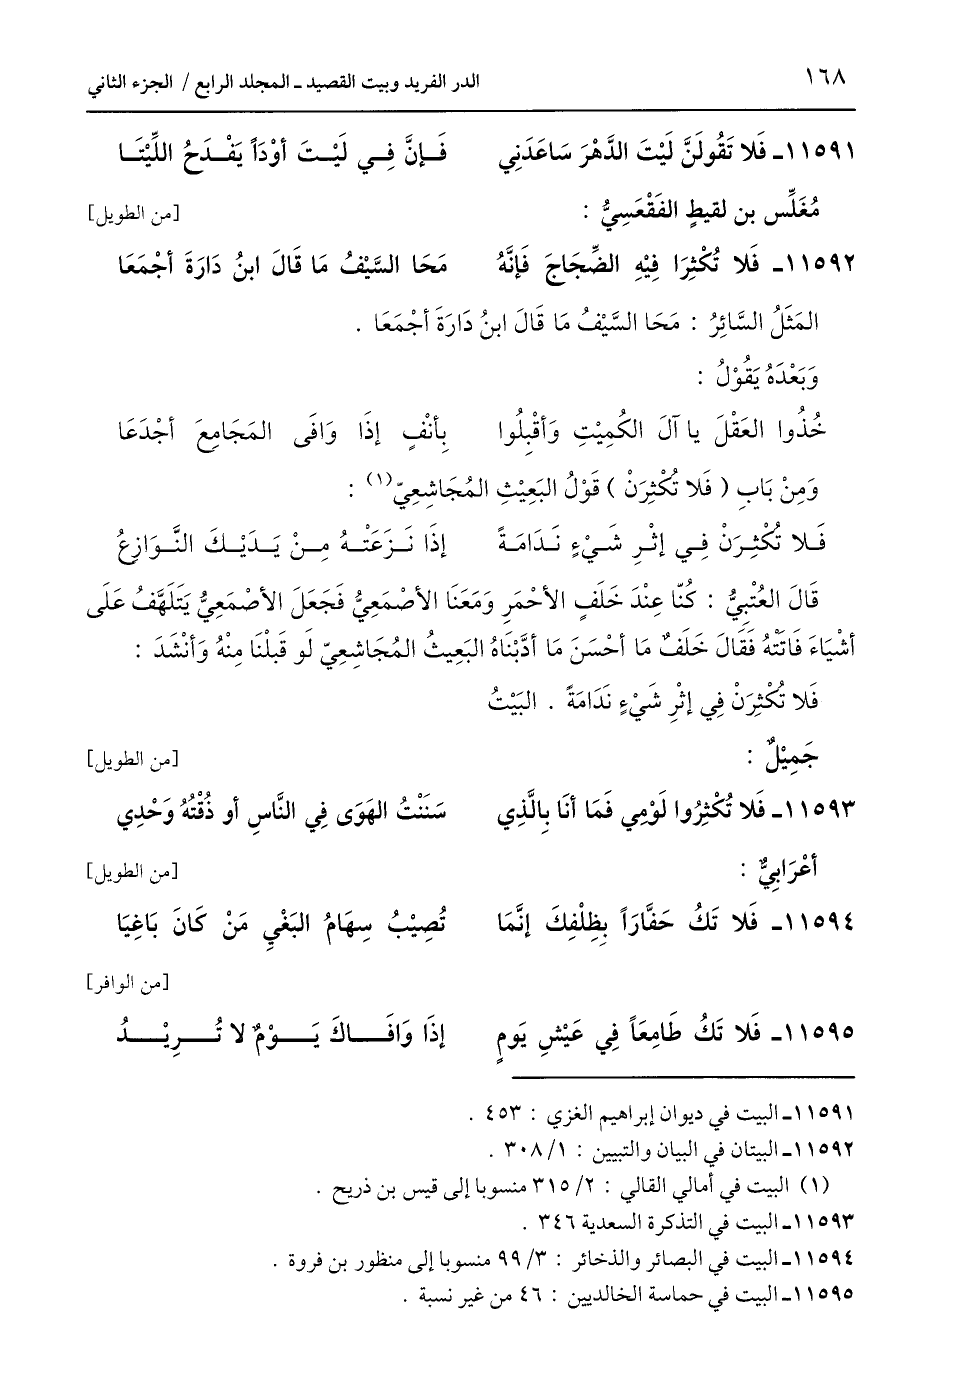 ١٦٨ الدر الفريد وبيت القصيد ـ المجلد الرابع / الجزء الثاني
١١٥٩١ـ فَلا تَقُولَنَّ لَيْتَ الدَّهْرَ سَاعَدَنِي فَإنَّ فِي لَيْتَ أوْدَاً يَفْدَحُ اللِّيْتَا
مُغَلِّس بن لقيطٍ الفَقْعَسِيُّ : [من الطويل]
١١٥٩٢ـ فَلا تُكْثِرَا فِيْهِ الضِّجَاجَ فَإنَّهُ مَحَا السَّيْفُ مَا قَالَ ابنُ دَارَةَ أجْمَعَا
المَثَلُ السَّائِرُ : مَحَا السَّيْفُ مَا قَالَ ابنُ دَارَةَ أجْمَعَا .
وَبَعْدَهُ يَقُوْلُ :
خُذُوا العَقْلَ يا آلَ الكُمِيْتِ وَأقْبِلُوا بِأنْفٍ إذَا وَافَى المَجَامِعَ أجْدَعَا
وَمِنْ بَابِ ( فَلا تُكْثِرَنْ ) قَوْلُ البَعِيْثِ المُجَاشِعِيّ(١) :
فَلا تُكْثِرَنْ فِي إثْرِ شَيْءٍ نَدَامَةً إذَا نَزَعَتْهُ مِنْ يَدَيْكَ النَّوَازِعُ
قَالَ العُتْبِيُّ : كُنّا عِنْدَ خَلَفٍ الأحْمَرِ وَمَعَنَا الأصْمَعِيُّ فَجَعَلَ الأصْمَعِيُّ يَتَلَهَّفُ عَلَى
أشْيَاءَ فَاتَتْهُ فَقَالَ خَلَفٌ مَا أحْسَنَ مَا أدَّبْنَاهُ البَعِيثُ المُجَاشِعِيّ لَو قَبلْنَا مِنْهُ وَأنْشَدَ :
فَلا تُكْثِرَنْ فِي إثْرِ شَيْءٍ نَدَامَةً . البَيْتُ
جَمِيْلٌ : [من الطويل]
١١٥٩٣ـ فَلا تُكْثِرُوا لَوْمِي فَمَا أنَا بِالَّذِي سَنَنْتُ الهَوَى فِي النَّاسِ أو ذُقْتُهُ وَحْدِي
أعْرَابِيٌّ : [من الطويل]
١١٥٩٤ـ فَلا تَكُ حَفَّارَاً بِظِلْفِكَ إنَّمَا تُصِيْبُ سِهَامُ البَغْيِ مَنْ كَانَ بَاغِيَا
[من الوافر]
١١٥٩٥ـ فَلا تَكُ طَامِعَاً فِي عَيْشِ يَومٍ إذَا وَافَاكَ يَوْمٌ لا تُرِيْدُ
١١٥٩١ـ البيت في ديوان إبراهيم الغزي : ٤٥٣ .
١١٥٩٢ـ البيتان في البيان والتبيين : ١/ ٣٠٨ .
(١) البيت في أمالي القالي : ٢/ ٣١٥ منسوبا إلى قيس بن ذريح .
١١٥٩٣ـ البيت في التذكرة السعدية ٣٤٦ .
١١٥٩٤ـ البيت في البصائر والذخائر : ٣/ ٩٩ منسوبا إلى منظور بن فروة .
١١٥٩٥ـ البيت في حماسة الخالديين : ٤٦ من غير نسبة .